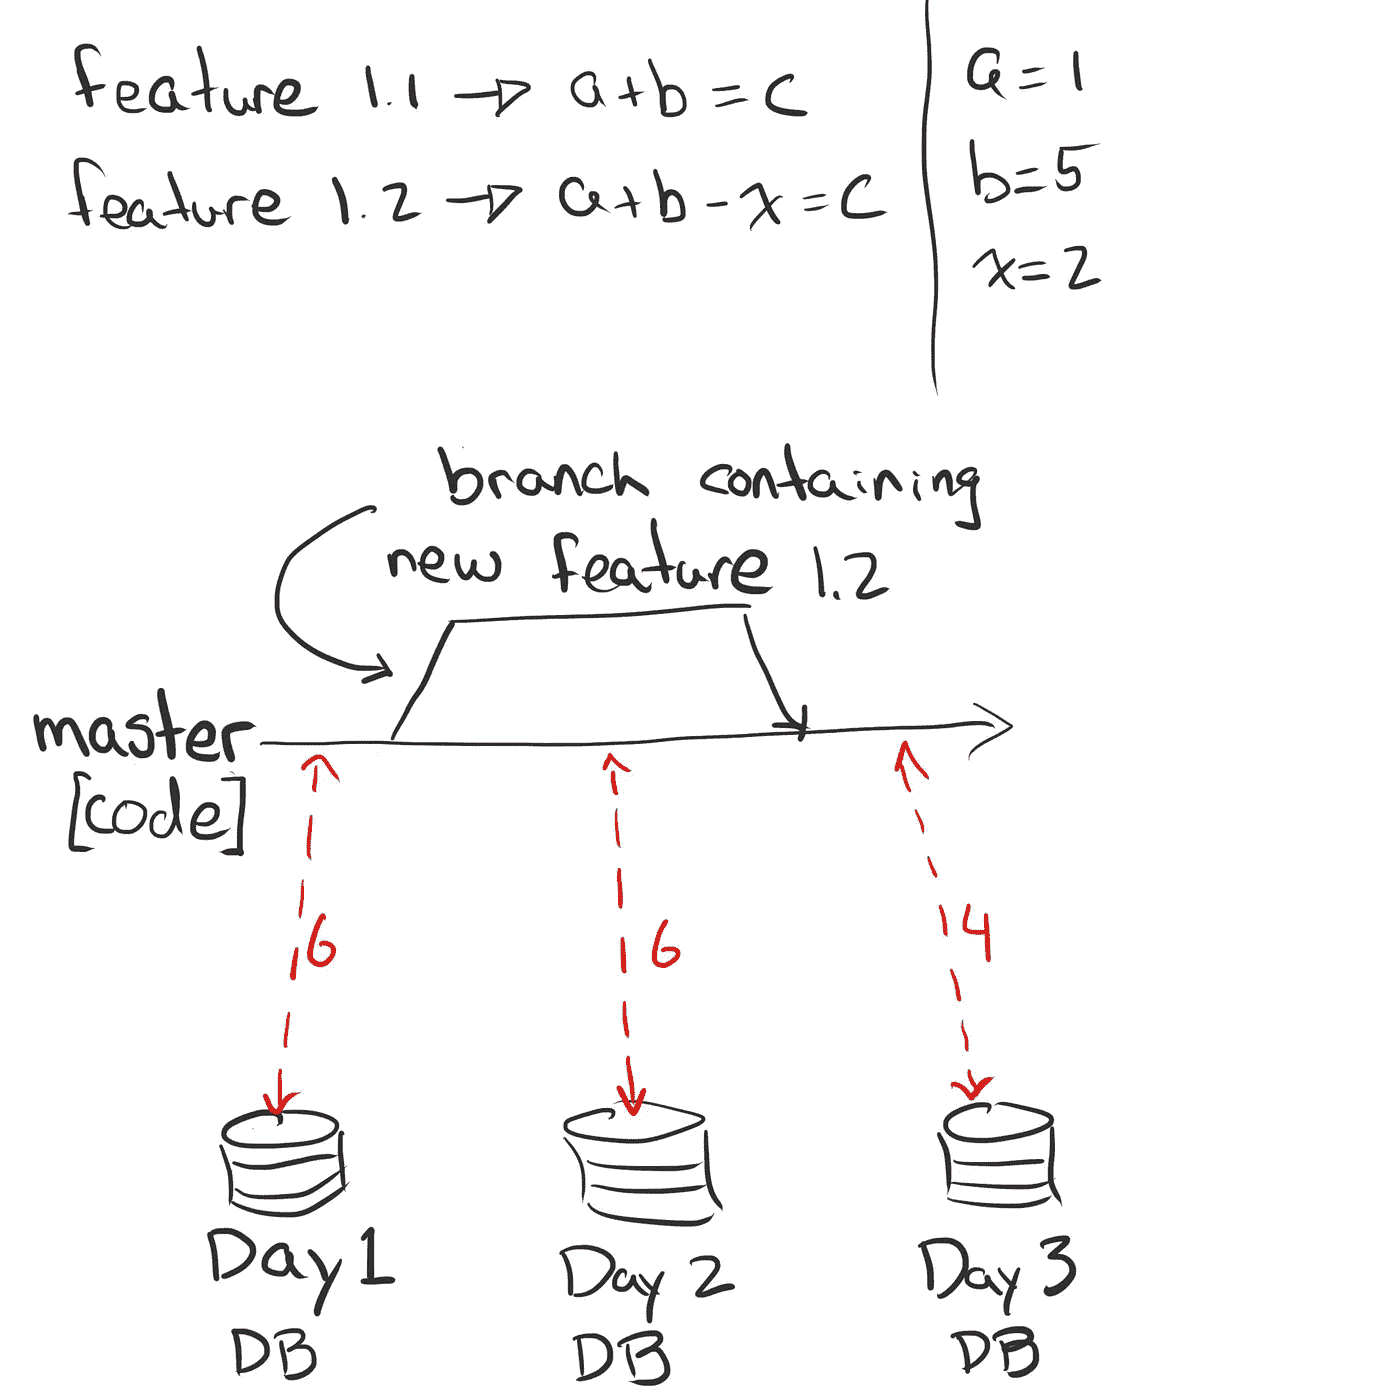 feature 1.1 → a+b=c
feature 1.2 → a+b-x=c
a=1
b=5
x=2
branch containing
new feature 1.2
master
[code]
6
6
4
Day 1
DB
Day 2
DB
Day 3
DB